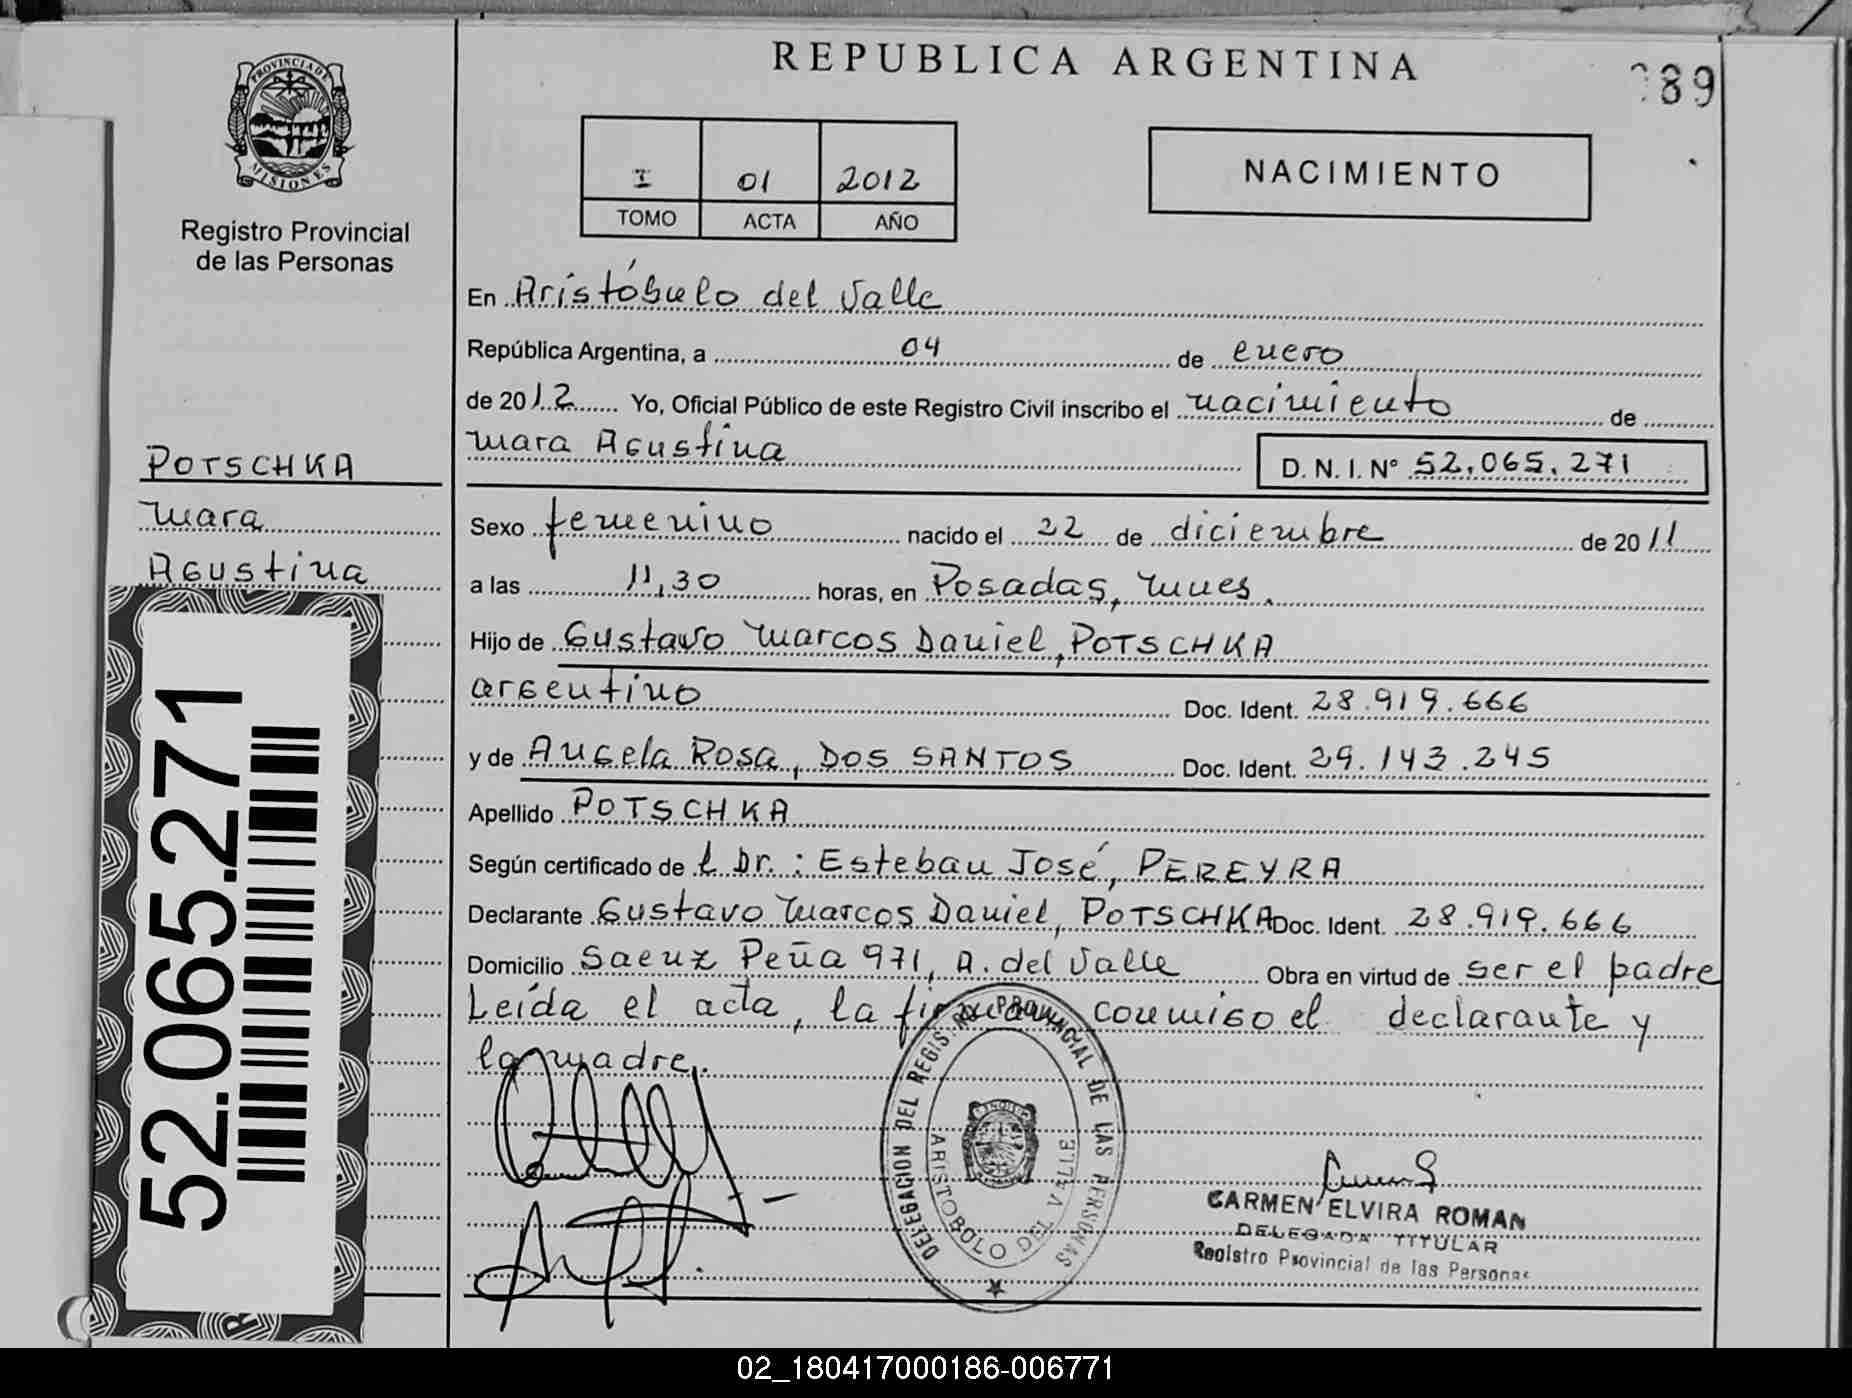 REPUBLICA ARGENTINA
89
PROVINCIA DE
MISIONES
Registro Provincial
de las Personas
I 01 2012
TOMO ACTA AÑO
NACIMIENTO
En Aristóbulo del Valle
República Argentina, a 04 de enero
de 2012 Yo, Oficial Público de este Registro Civil inscribo el nacimiento de
Mara Agustina D.N.I.N° 52.065.271
POTSCHKA
Mara
Agustina
Sexo femenino nacido el 22 de diciembre de 2011
a las 11,30 horas, en Posadas, Mnes.
Hijo de Gustavo Marcos Daniel, POTSCHKA
argentino Doc. Ident. 28.919.666
y de Angela Rosa, DOS SANTOS Doc. Ident. 29.143.245
Apellido POTSCHKA
Según certificado de l Dr.: Esteban José, PEREYRA
Declarante Gustavo Marcos Daniel, POTSCHKA Doc. Ident. 28.919.666
Domicilio Saenz Peña 971, A. del Valle Obra en virtud de ser el padre
Leída el acta, la firman conmigo el declarante y
la madre.
52.065.271
DELEGACION DEL REGISTRO PROVINCIAL DE LAS PERSONAS
ARISTOBOLO DEL VALLE
CARMEN ELVIRA ROMAN
DELEGADA TITULAR
Registro Provincial de las Personas
02_180417000186-006771